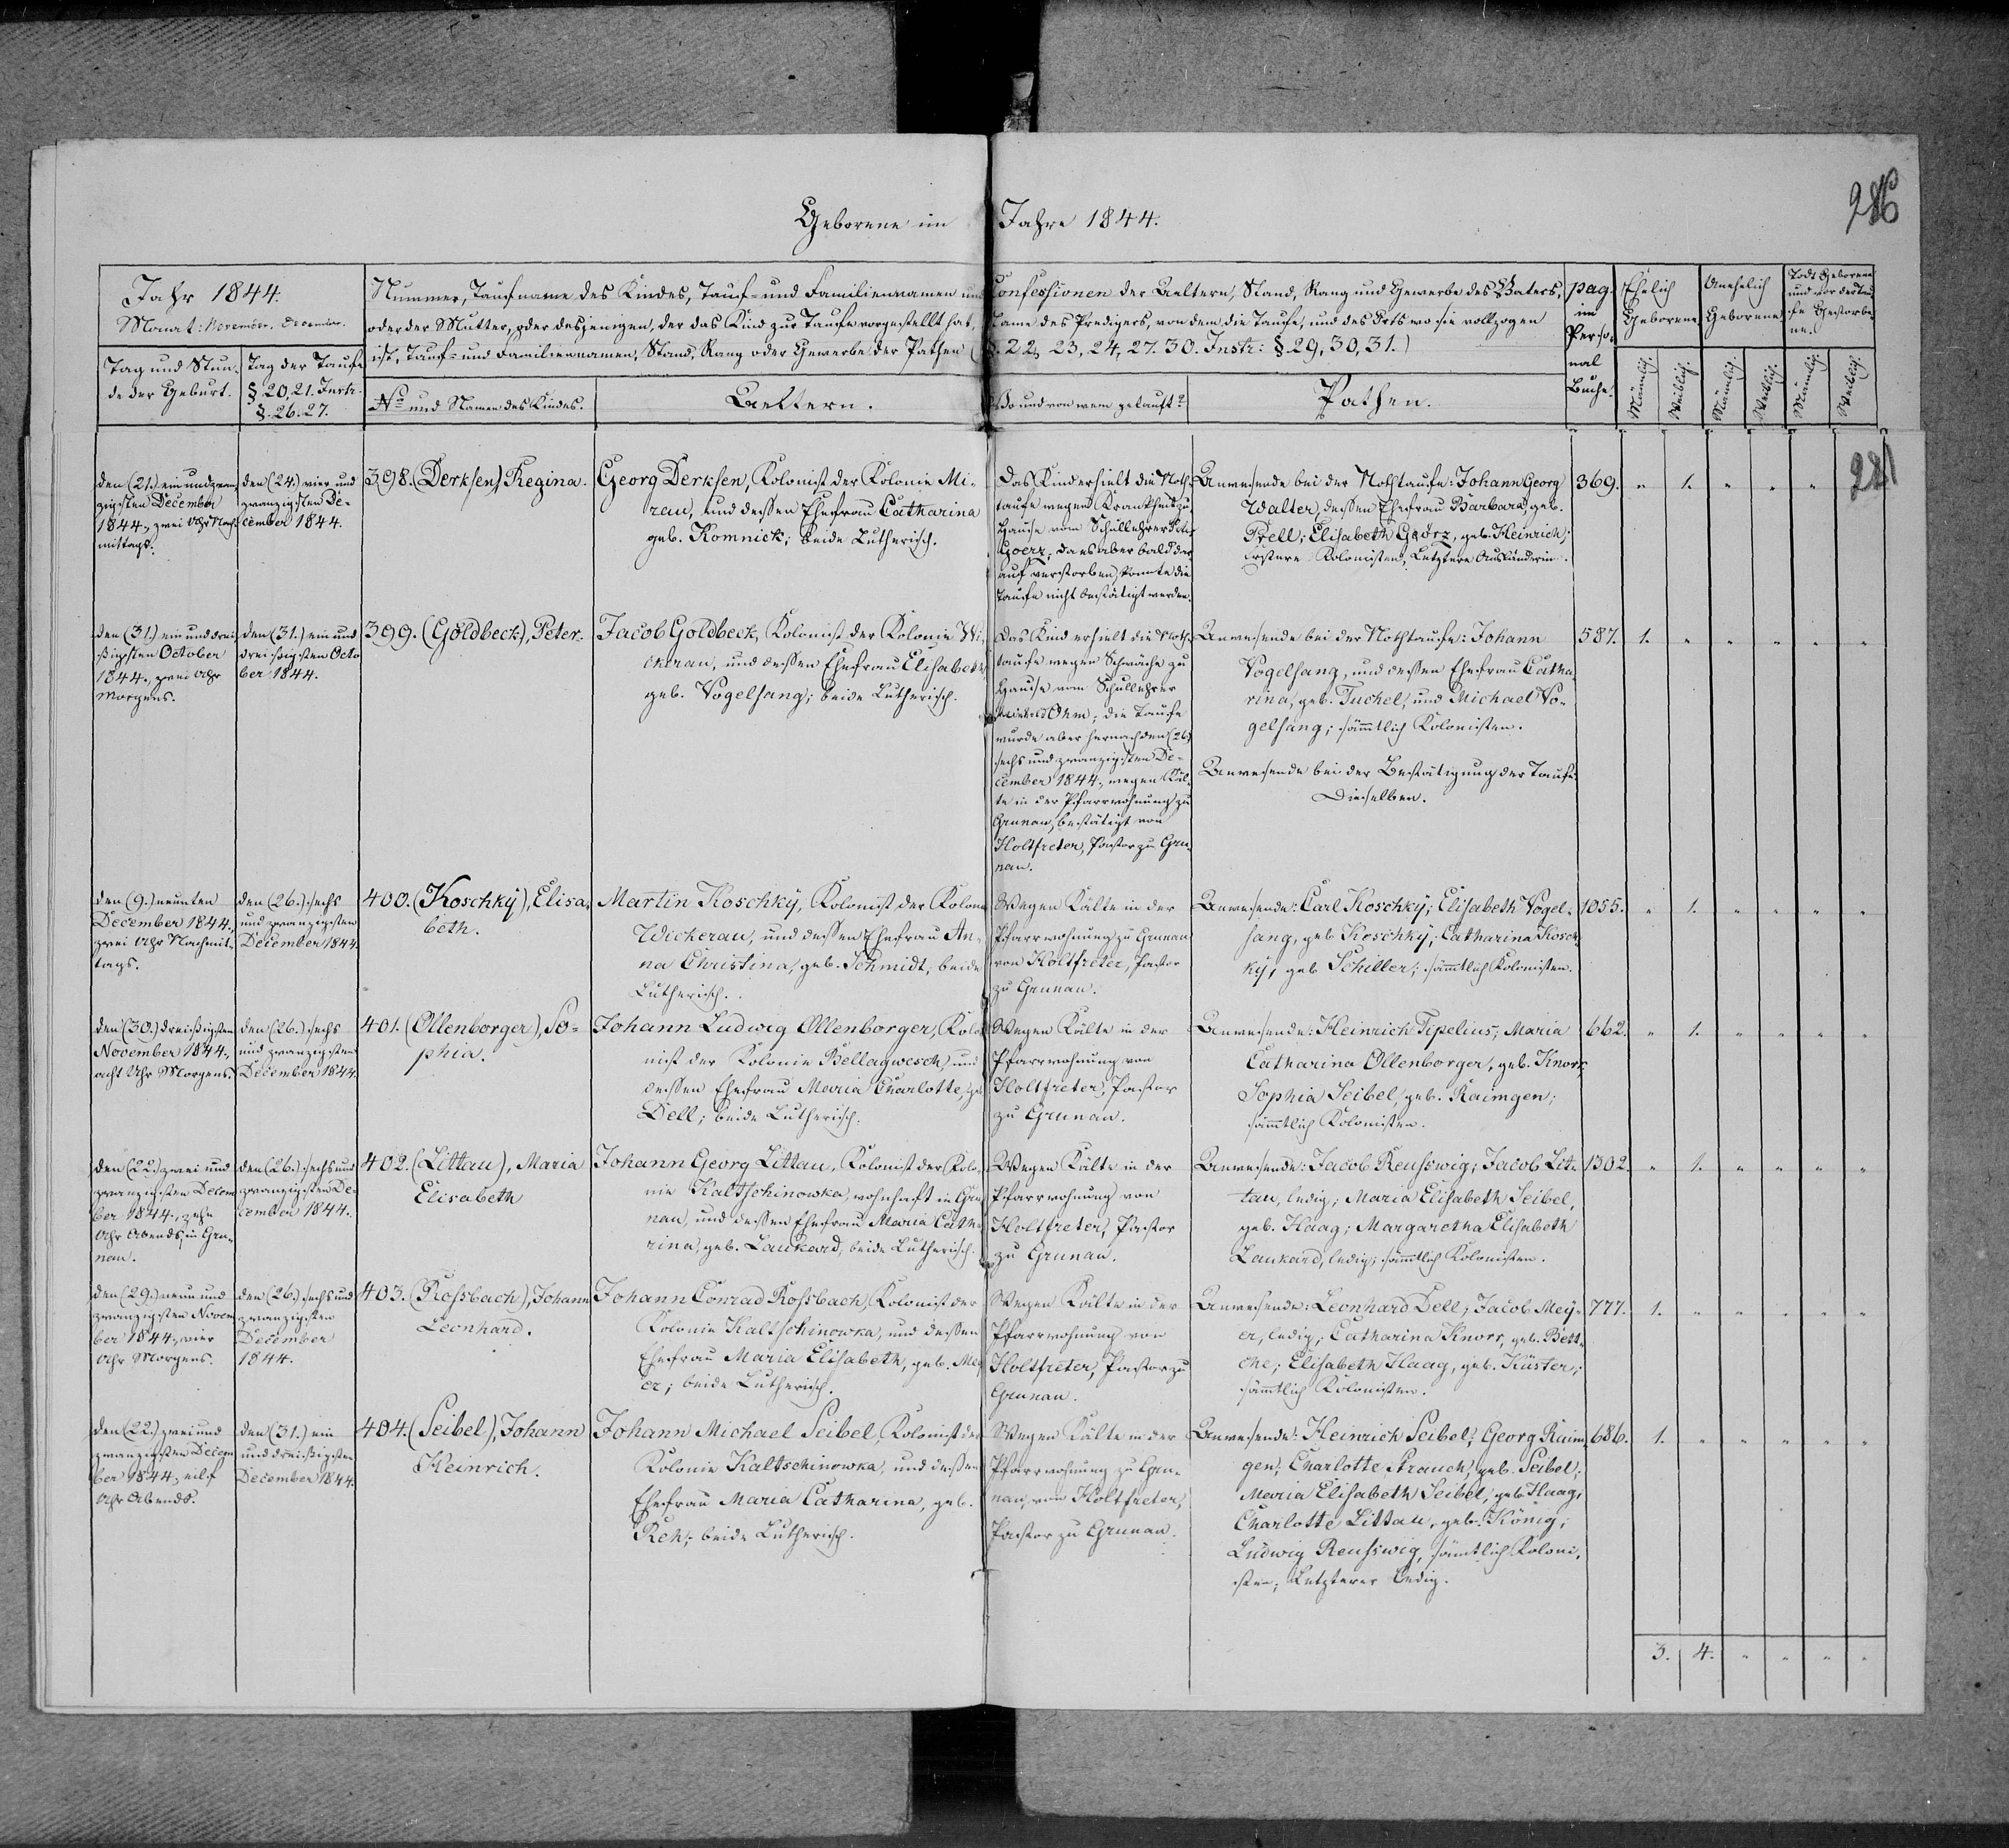 Geborene im Jahre 1844.
286
Jahr 1844.
Monat: November. December.
Tag und Stun-
de der Geburt.
Tag der Taufe
§ 20, 21. Instr.
§. 26. 27.
Nummer, Taufname des Kindes, Tauf- und Familiennamen und Confessionen der Aeltern, Stand, Rang und Gewerbe des Vaters,
oder der Mutter, oder desjenigen, der das Kind zur Taufe vorgestellt hat, Name des Predigers, von dem die Taufe, und des Orts wo sie vollzogen
ist, Tauf- und Familiennamen, Stand, Rang oder Gewerbe der Pathen (§. 22, 23, 24, 27. 30. Instr: § 29, 30, 31.)
No und Namen des Kindes.
Aeltern.
Wo und von wem getauft?
Pathen.
pag.
im
Perso-
nal
Buche.
Ehelich
Geborene.
Unehelich
Geborene
Todt Geborene
und vor der Tau-
fe Gestorbe-
ne.
Männlich.
Weiblich.
Männlich.
Weiblich.
Männlich.
Weiblich.
den (21.) ein und zwan-
zigsten December
1844., zwei Uhr Nach-
mittags.
den (24.) vier und
zwanzigsten De-
cember 1844.
398. (Derksen) Regina.
Georg Derksen, Kolonist der Kolonie Mi-
rau, und dessen Ehefrau Catharina
geb. Komnick; beide Lutherisch.
Das Kind erhielt die Noth-
taufe wegen Krankheit zu
Hause vom Schullehrer
Goerz; da es aber bald dar
auf verstorben, konnte die
Taufe nicht bestätigt werden.
Anwesende bei der Nothtaufe: Johann Georg
Walter, dessen Ehefrau Barbara, geb.
Prell; Elisabeth Goerz, geb. Heinrich;
Erstere Kolonisten, Letztere Ausländerin.
369. " 1. " " "
281
den (31.) ein und drei-
ßigsten October
1844., zwei Uhr
Morgens.
den (31.) ein und
dreißigsten Octo
ber 1844.
399. (Goldbeck), Peter.
Jacob Goldbeck, Kolonist der Kolonie Wi-
ckerau, und dessen Ehefrau Elisabeth,
geb. Vogelsang; beide Lutherisch.
Das Kind erhielt die Noth-
taufe wegen Schwäche zu
Hause vom Schullehrer
Ohm; die Taufe
wurde aber hernach den (26.)
sechs und zwanzigsten De-
cember 1844., wegen Käl-
te in der Pfarrwohnung zu
Grunau, bestätigt von
Holtfreter, Pastor zu Gru-
nau.
Anwesende bei der Nothtaufe: Johann
Vogelsang, und dessen Ehefrau Catha-
rina, geb. Tuchel, und Michael Vo-
gelsang; sämtlich Kolonisten.
Anwesende bei der Bestätigung der Taufe:
Dieselben.
587. 1. " " " " "
den (9.) neunten
December 1844.,
zwei Uhr Nachmit-
tags.
den (26.) sechs
und zwanzigsten
December 1844.
400. (Koschky), Elisa-
beth.
Martin Koschky, Kolonist der Kolonie
Wickerau, und dessen Ehefrau An-
na Christina, geb. Schmidt; beide
Lutherisch.
Wegen Kälte in der
Pfarrwohnung zu Grunau
von Holtfreter, Pastor
zu Grunau.
Anwesende: Carl Koschky; Elisabeth Vogel-
sang, geb. Koschky; Catharina Kosch-
ky, geb. Schiller; sämtlich Kolonisten.
1055. " 1. " " " "
den (30.) dreißigsten
November 1844.,
acht Uhr Morgens.
den (26.) sechs
und zwanzigsten
December 1844.
401. (Ollenborger), So-
phia.
Johann Ludwig Ollenborger, Kolo-
nist der Kolonie Bellagwesch, und
dessen Ehefrau Maria Charlotte, geb.
Dell; beide Lutherisch.
Wegen Kälte in der
Pfarrwohnung von
Holtfreter, Pastor
zu Grunau.
Anwesende: Heinrich Tipelius; Maria
Catharina Ollenborger, geb. Knorr;
Sophia Seibel, geb. Raimgen;
sämtlich Kolonisten.
662. " 1. " " " "
den (22.) zwei und
zwanzigsten Decem
ber 1844., zehn
Uhr Abends, in Gru-
nau.
den (26.) sechs und
zwanzigsten De-
cember 1844.
402. (Littau), Maria
Elisabeth
Johann Georg Littau, Kolonist der Kolo-
nie Kaltschinowka, wohnhaft in Gru-
nau, und dessen Ehefrau Maria Catha-
rina, geb. Laukard; beide Lutherisch.
Wegen Kälte in der
Pfarrwohnung von
Holtfreter, Pastor
zu Grunau.
Anwesende: Jacob Reusswig; Jacob Lit-
tau, ledig; Maria Elisabeth Seibel,
geb. Haag; Margaretha Elisabeth
Laukard, ledig; sämtlich Kolonisten.
1302. " 1. " " " "
den (29.) neun und
zwanzigsten Novem
ber 1844., vier
Uhr Morgens.
den (26.) sechs und
zwanzigsten
December
1844.
403. (Rossbach), Johann
Leonhard.
Johann Conrad Rossbach, Kolonist der
Kolonie Kaltschinowka, und dessen
Ehefrau Maria Elisabeth, geb. Mey-
er; beide Lutherisch.
Wegen Kälte in der
Pfarrwohnung von
Holtfreter, Pastor zu
Grunau.
Anwesende: Leonhard Dell; Jacob Mey-
er, ledig; Catharina Knorr, geb. Bött-
che; Elisabeth Haag, geb. Küster;
sämtlich Kolonisten.
777. 1. " " " " "
den (22.) zwei und
zwanzigsten Decem
ber 1844., eilf
Uhr Abends.
den (31.) ein
und dreißigsten
December 1844.
404. (Seibel), Johann
Heinrich.
Johann Michael Seibel, Kolonist der
Kolonie Kaltschinowka, und dessen
Ehefrau Maria Catharina, geb.
Reh; beide Lutherisch.
Wegen Kälte in der
Pfarrwohnung zu Gru-
nau, von Holtfreter,
Pastor zu Grunau.
Anwesende: Heinrich Seibel; Georg Raim-
gen; Charlotte Strauch, geb. Seibel;
Maria Elisabeth Seibel, geb. Haag;
Charlotte Littau, geb. König;
Ludwig Reusswig, sämtlich Koloni-
sten; Letzterer ledig.
686. 1. " " " " "
3. 4. " " " "